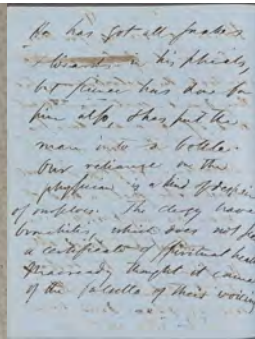 He has got all snakes
& lizards in his phials,
but science has done for
him also, & has put the
man into a bottle.
Our reliance on the
physician is a kind of despair
of ourselves. The clergy have
bronchitis, which does not
a certificate of spiritual health.
Macready thought it came
of the falsetto of their voicing